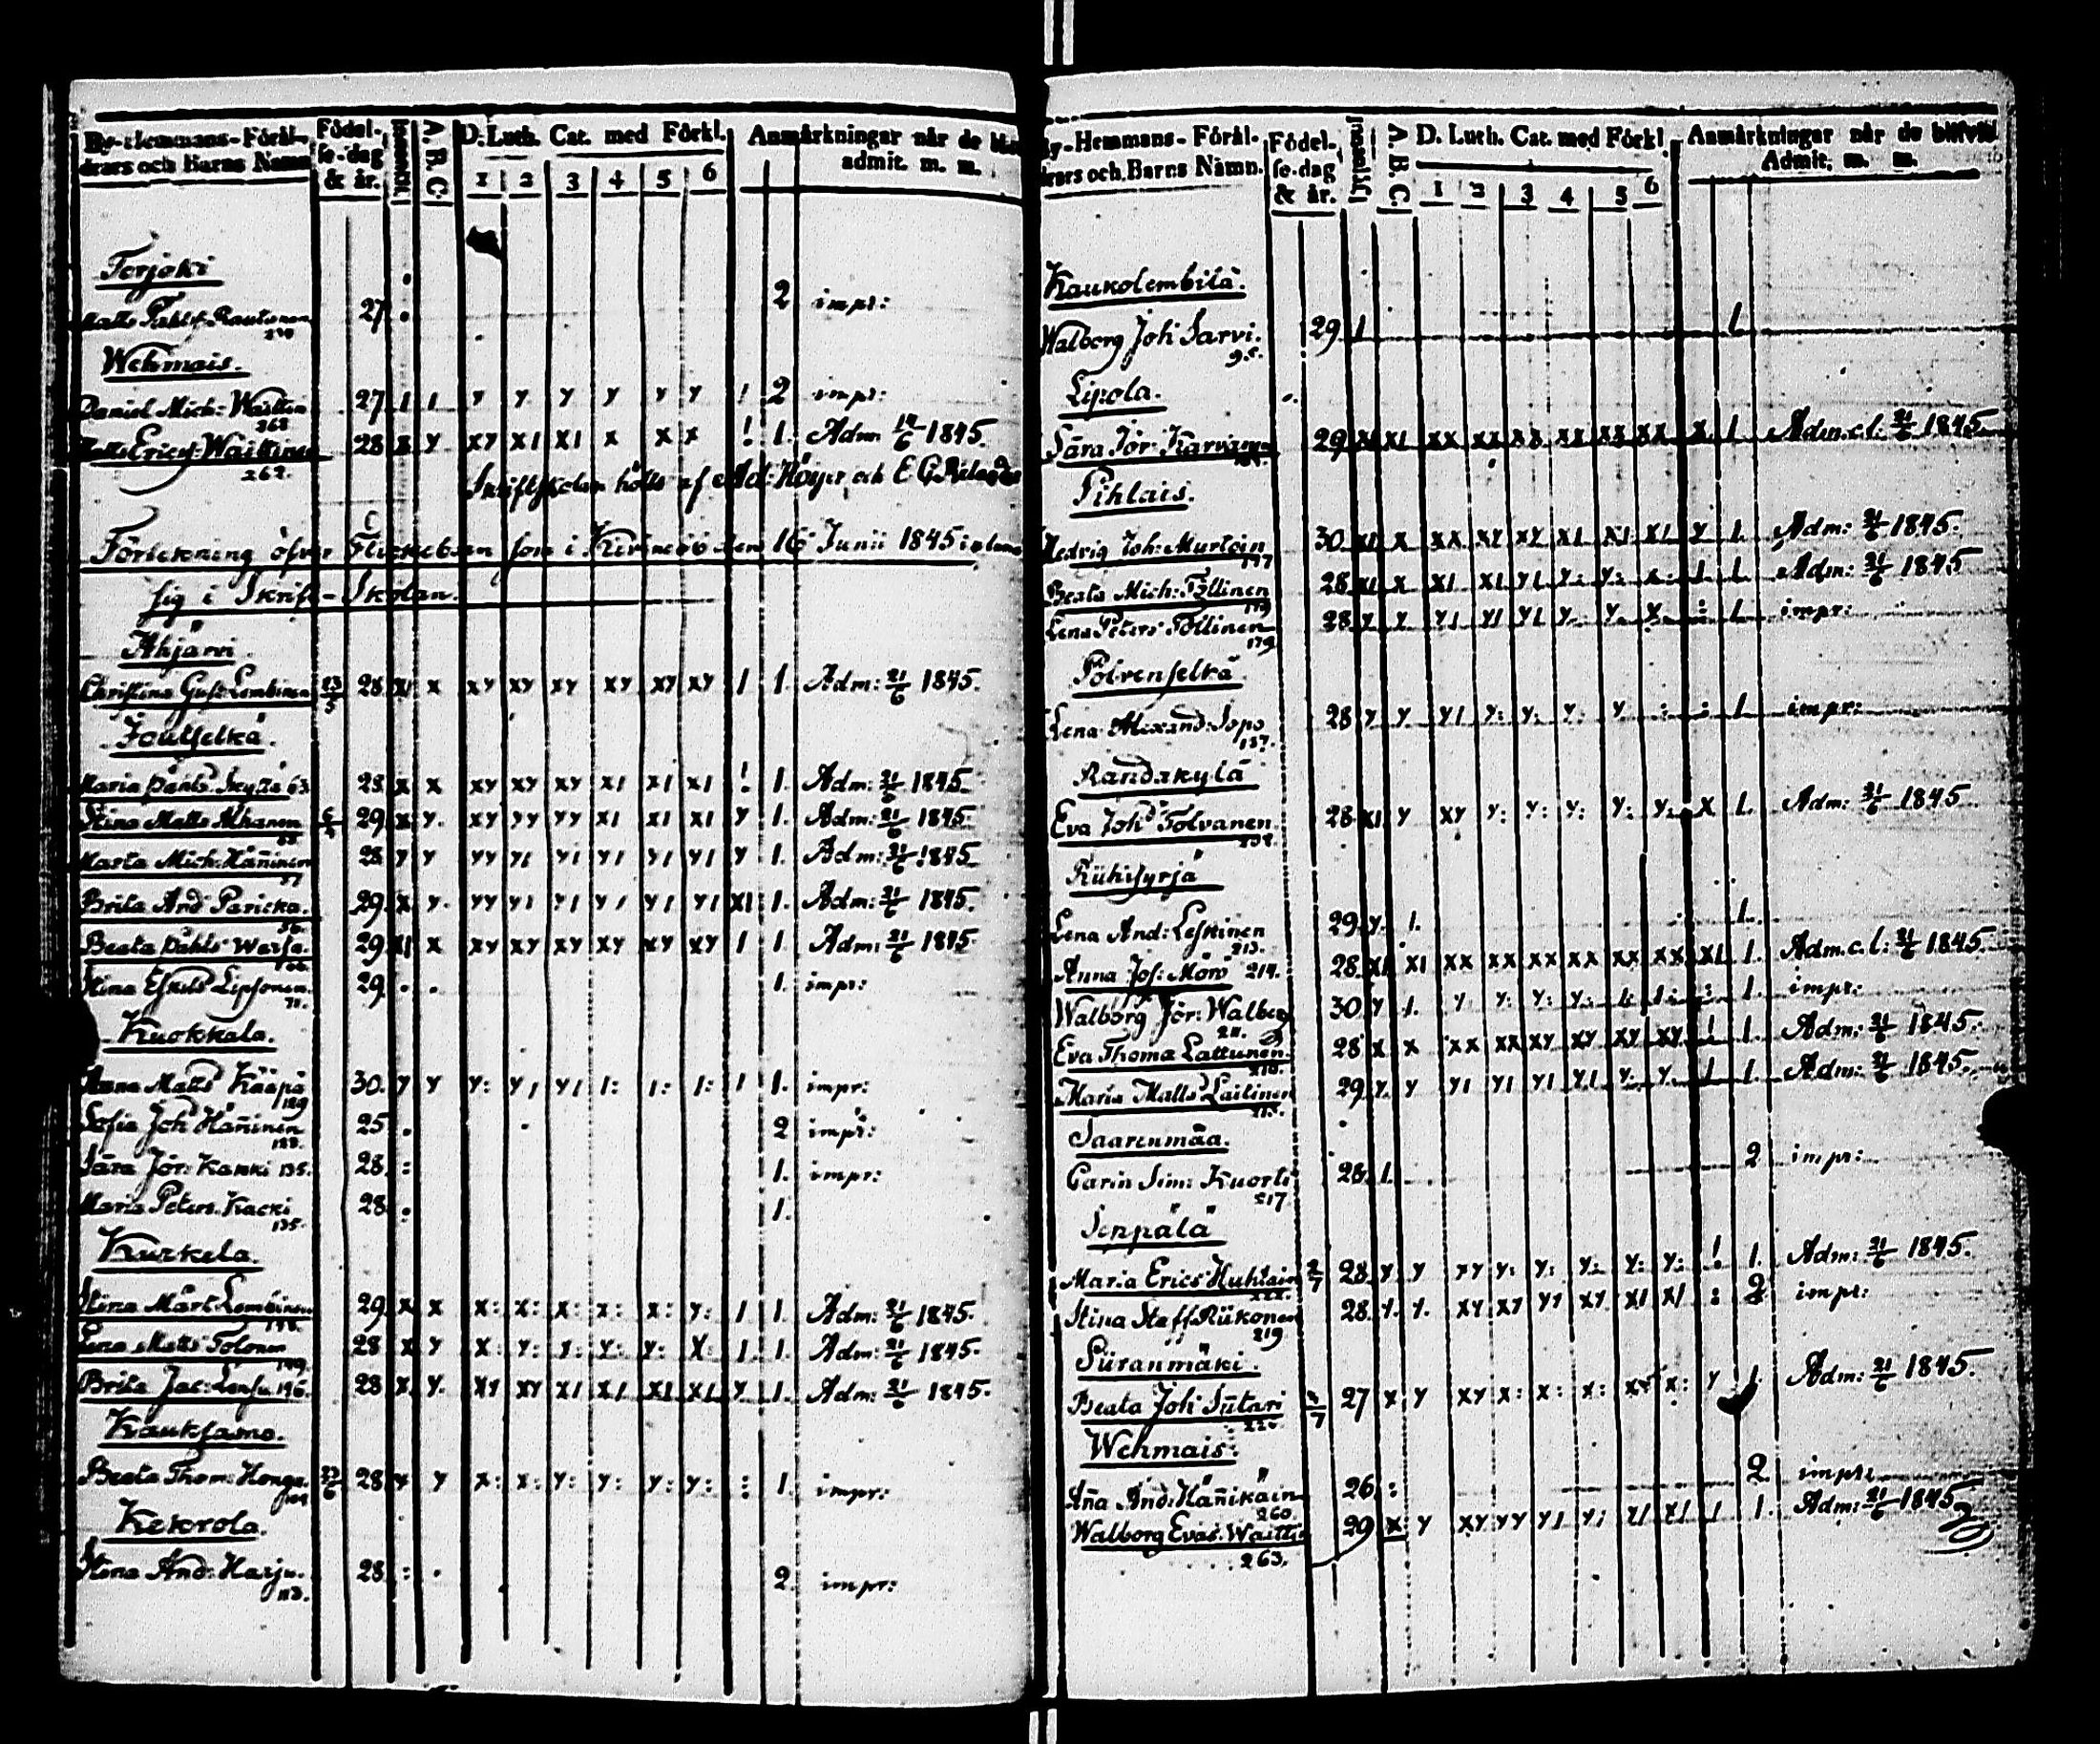 By-Hemmans-Föräl-
drars och Barns Namn
Födel-
se-dag
& år.
Innantil
A. B. C.
D. Luth. Cat. med Förkl.
1 2 3 4 5 6
Anmärkningar när de
admit. m. m.
Terjoki
27 . 2 impr:
Wehmais.
Daniel Mich: 27 1 1 y y y y y y ! 2 impr:
268
Matts Erics: Waittinen 28 x y xy x1 x1 x x x ! 1. Adm: 6 1845.
262.
Skriftskolan hölts af Ad: Höijer och E G
Förtekning öfver Flickebarn som i Kivinebb den 16 Junii 1845
sig i Skrift-Skolan.
Ahjärvi
Christina Gust: Lembinen 28 x1 x xy xy xy xy xy xy 1 1. Adm: 21/6 1845.
Joutselkä.
Maria Påhls 63. 28 x x xy xy xy x1 x1 x1 ! 1. Adm: 21/6 1845.
Stina Matts 29 x y. xy yy yy x1 x1 x1 y 1. Adm: 21/6 1845.
Marta Mich: Häñinen 28 y y yy y1 y1 y1 y1 y1 y 1. Adm: 21/6 1845
Brita And: Paricka. 29 x. y. yy y1 y1 y1 y1 y1 x1 1. Adm: 21/6 1845.
Beata Påhls 29 x1 x xy xy xy xy xy xy 1 1. Adm: 21/6 1845.
Stina Eskils Lipsonen. 29. . . 1. impr:
71.
Kuokkala.
Anna Matts Kääpä 30. y y y: y1 y1 1: 1: 1: 1 1. impr:
129
Sofia Joh: Häñinen 25 . 2 impr:
Sara Jör: Kanki 135. 28. : 1. impr:
Maria Peters. 28. : 1.
135.
Kurkela.
Stina Mårt: Lembinen 29. x x x: x: x: x: x: y: 1 1. Adm: 21/6 1845.
Lena Matts Tolonen 28 x y x: y: y: y: y: x: 1. 1. Adm: 21/6 1845.
149.
Brita Jac: 146. 28 x. y. xy xy x1 x1 x1 x1 y 1. Adm: 21/6 1845.
Kauksamo.
Beata Thom: Honga 28 x y x: x: y: y: y: y: : 1. impr:
Kekrola.
Stina And: Harju. 28. : . 2. impr:
113.
By-Hemmans-Föräl-
drars och Barns Namn.
Födel-
se-dag
& år.
Innantil
A. B. C.
D. Luth. Cat. med Förkl.
1 2 3 4 5 6
Anmärkningar när de blifvit
Admit. m. m.
Kaukolembilä.
Walborg Joh: Sarvi. 29 1 1
95.
Lipola.
Sara Jör: 29 x1 x1 xx xx xx xx xx xx x. 1 Adm.c.l: 21/6 1845
Pihlais.
Hedvig Joh: Murtoin 30. x1 x xx xy xy x1 x1 x1 y 1. Adm: 21/6 1845.
177
Beata Mich: Töllinen 28 x1 x x1 x1 y1 y: y: x: 1. 1. Adm: 21/6 1845
179
Lena Peters Töllinen 28 y y y1 y1 y1 y: y. y. : 1 impr:
179
Polvenselkä.
Lena Alexand: Sopo 28 y y y1 y: y: y: y : : 1 impr:
187.
Randakylä
Eva Joh: Tolvanen. 28 x1 y xy y: y: y: y: y: x 1. Adm: 21/6 1845.
Riihisyrjä
Lena And: Leskinen 29 y. 1. 1.
213.
Anna Jos: Mörö 214. 28 x1 x1 xx xx xx xx xx xx x1 1. Adm.c.l: 21/6 1845.
Walborg Jör: Walberg 30 y 1. y: y: y: y: 1: 1: : 1. impr:
211.
Eva Thoma Lattunen. 28 x x xx xx xy xy xy xy ! 1. Adm: 21/6 1845.
210.
Maria Matts Laitinen 29 y. y y1 y1 y1 y1 y: y. 1 1. Adm: 21/6 1845.
215.
Saarenmäa.
Carin Sim: Kuorti 28 1. 2 impr:
217.
Senpälä
Maria Erics Huhtain 2/7 28. y y xy y: y: y: y: y: ! 1. Adm: 21/6 1845.
Stina Staff: Riikonen 28. y. y. xy xy yy xy x1 x1 : 2 impr:
219
Siiranmäki.
Beata Joh: Siitari 27 x y xy x: x: x: x: x: y 1. Adm: 21/6 1845.
220.
Wehmais.
Aña And: Häñikäin 26. : 2. impr:
260.
Walborg Evas: Waitti 29 x y xy yy y1 y1 y1 x1 1 1. Adm: 21/6 1845
263.